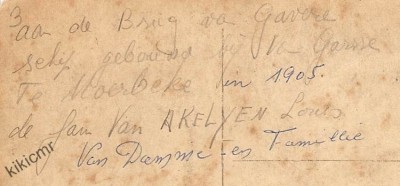 3
aan de Brug va Gavere
schip gebouwd bij Van
Te Moerbeke in 1905.
de fam Van AKELYEN Louis
Van Damme en Famillie
kikicmr